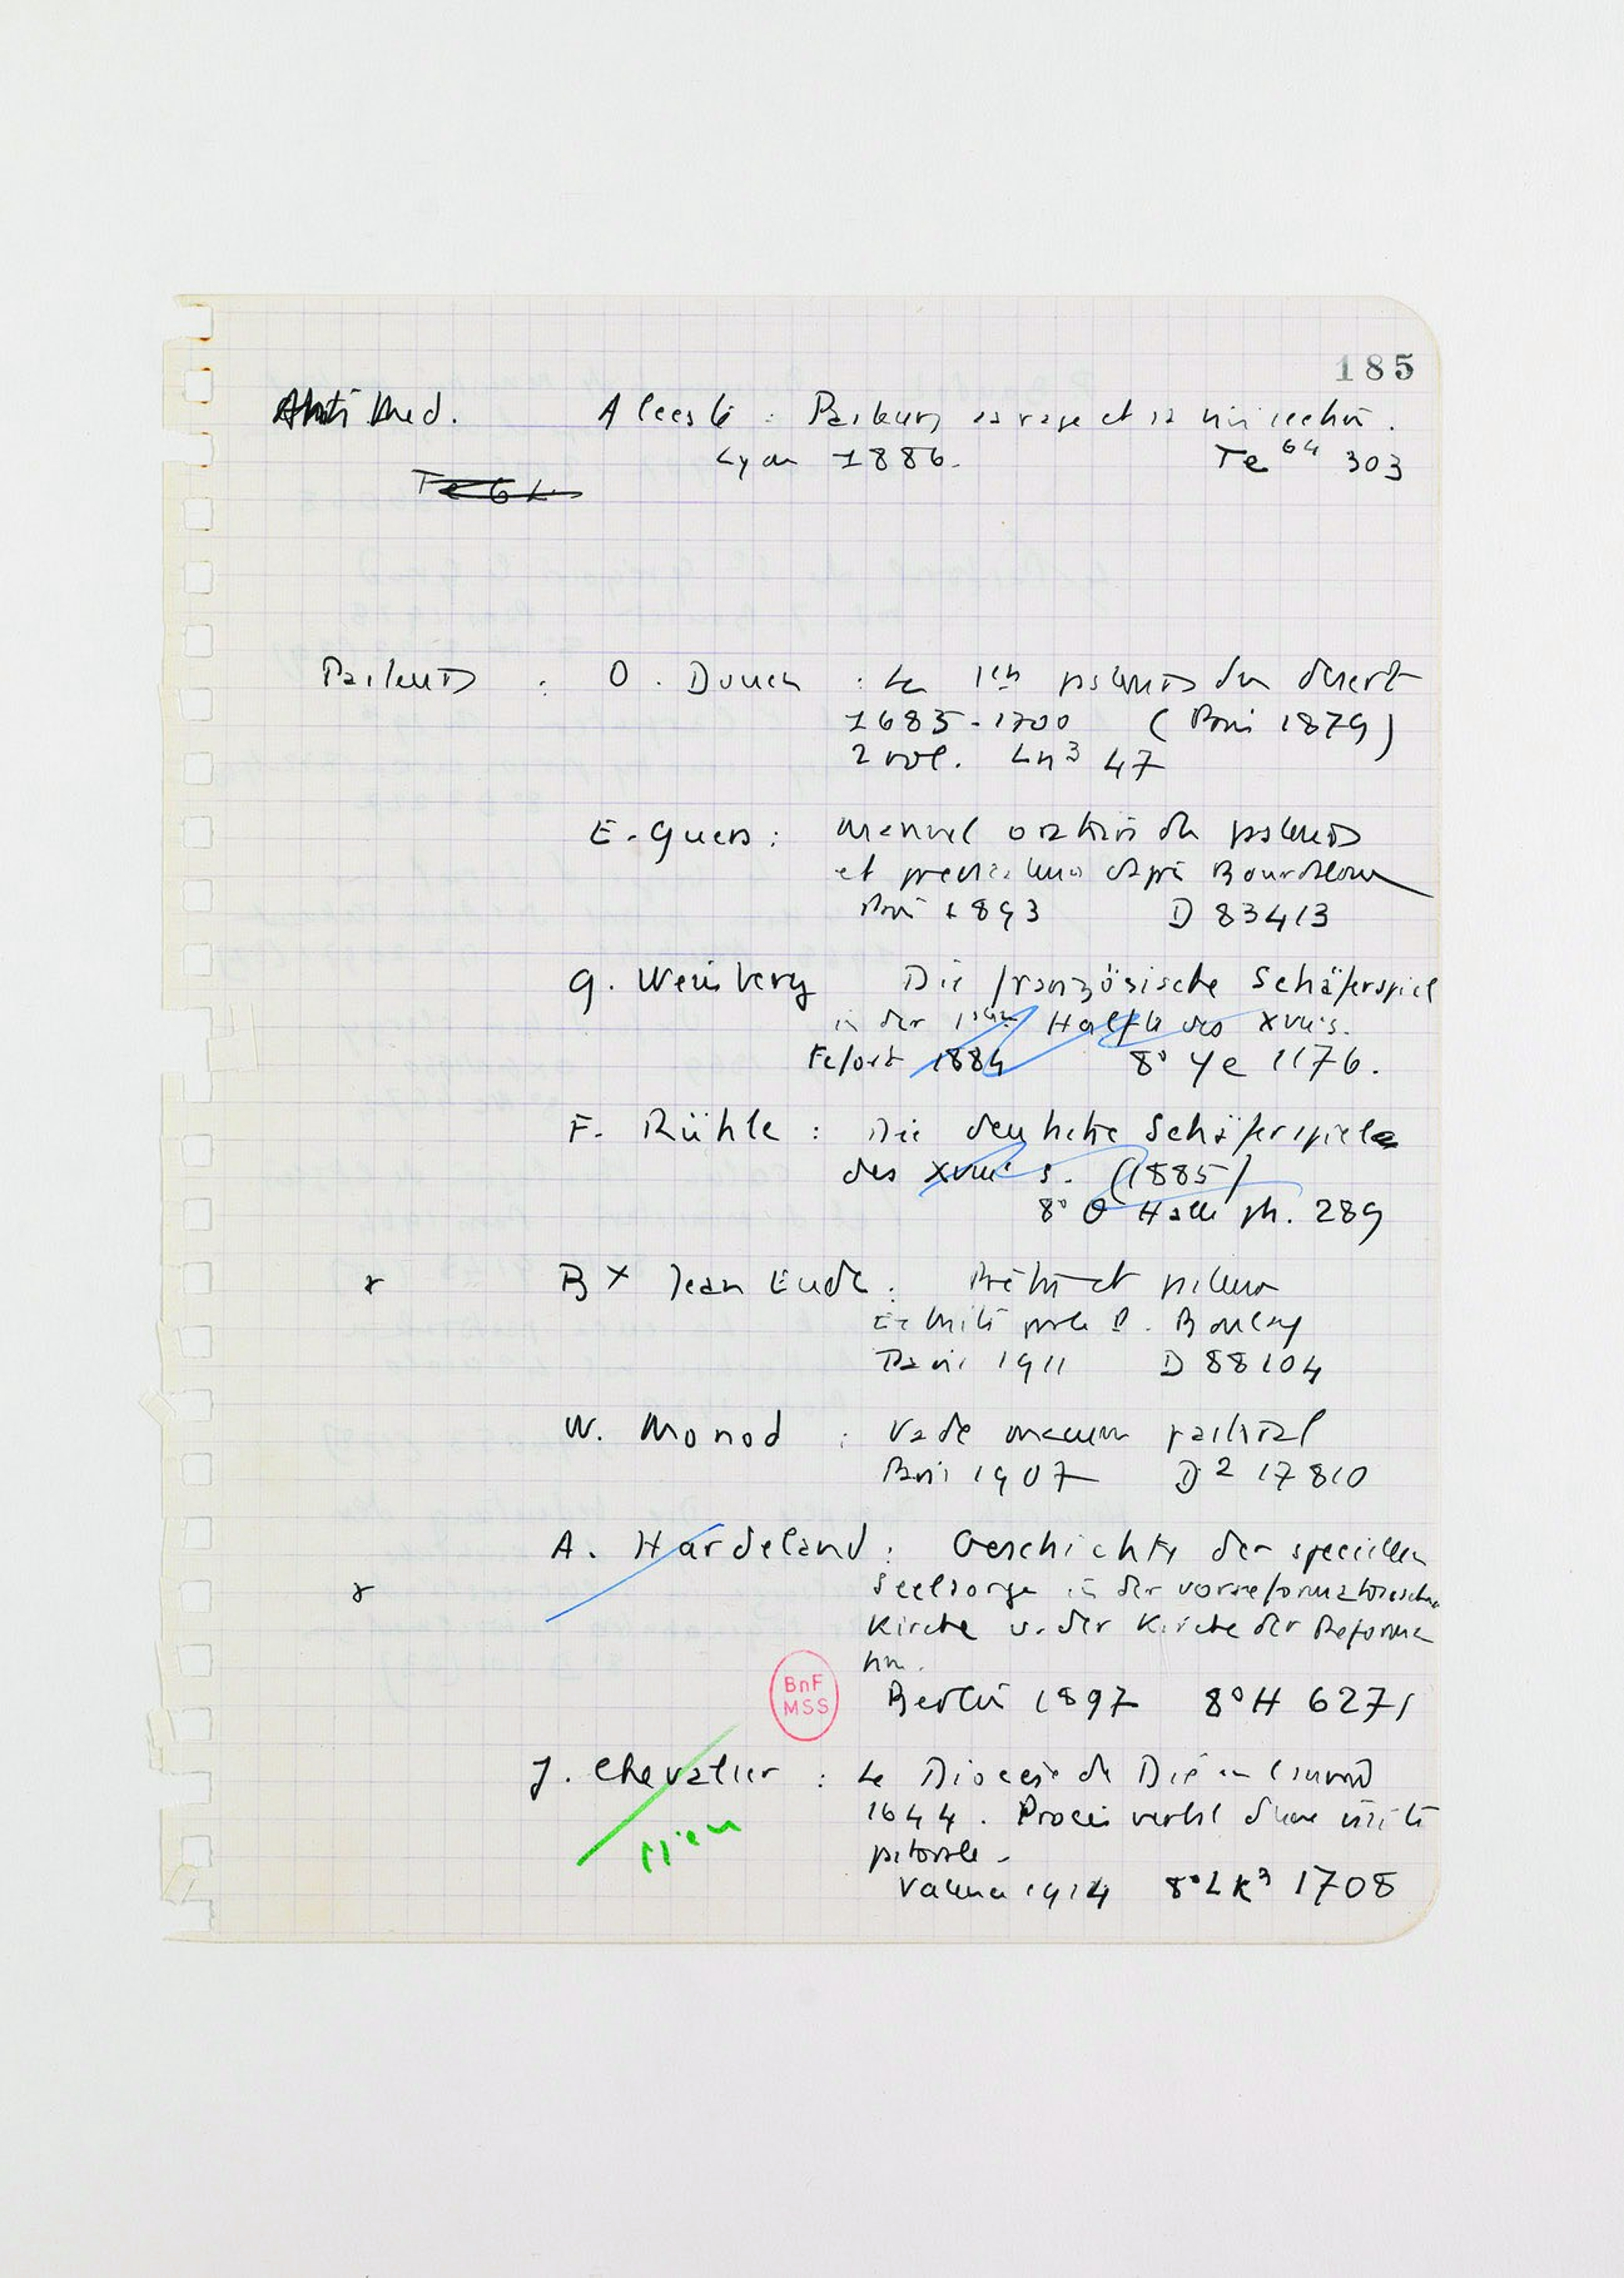 185
Anti Med. Alceste : Pasteur, sa rage et sa vivisection.
Lyon 1886. Te 64 303
Te 64
Pasteurs : O. Douen : Les 1ers pasteurs du désert
1685-1700 (Paris 1879)
2 vol. Ln3 47
E. Guers : Manuel oratoire des pasteurs
et prédicateurs d'après Bourdaloue
Paris 1893 D 83413
G. Weinberg Die französische Schäferspiel
in der Hälfte des XVIIs.
1884 8° Ye 1176.
F. Rühle : Die deutsche Schäferspiele
des XVIIIe s. (1885)
8° Θ Halle ph. 289
Bx Jean Eude : Prêtre et pasteur
Extraits par le P. Boulay
Paris 1911 D 88104
W. Monod : Vade mecum pastoral
Paris 1907 D2 17810
A. Hardeland : Geschichte der speciellen
Seelsorge in der vorreformatorischen
Kirche u. der Kirche der Reforma
tion.
BnF
MSS
Berlin 1897 8° H 6271
J. Chevalier : Le Diocèse de Die en l'année
1644. Procès verbal d'une visite
pastorale.
rien
Valence 1914 8° Lk3 1708